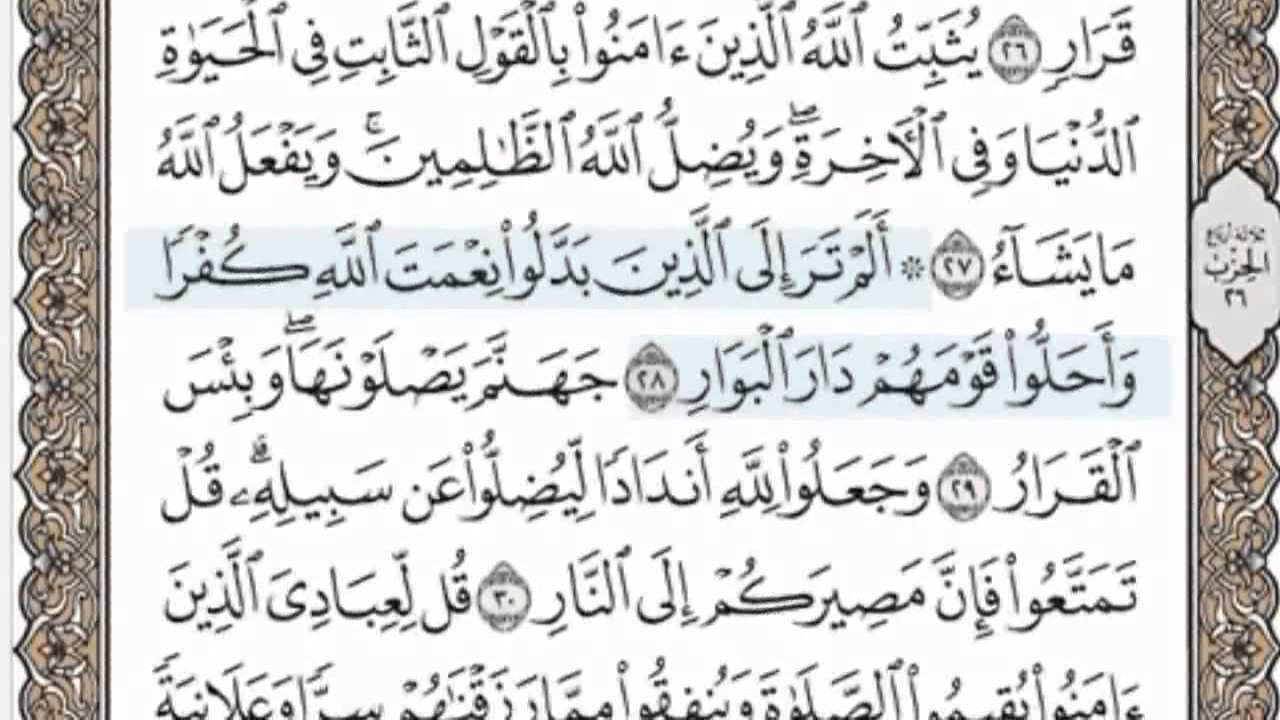 قَرَارٍ ٢٦ يُثَبِّتُ ٱللَّهُ ٱلَّذِينَ ءَامَنُوا۟ بِٱلْقَوْلِ ٱلثَّابِتِ فِى ٱلْحَيَوٰةِ
ٱلدُّنْيَا وَفِى ٱلْـَٔاخِرَةِ ۖ وَيُضِلُّ ٱللَّهُ ٱلظَّـٰلِمِينَ ۚ وَيَفْعَلُ ٱللَّهُ
مَا يَشَآءُ ٢٧ ۞ أَلَمْ تَرَ إِلَى ٱلَّذِينَ بَدَّلُوا۟ نِعْمَتَ ٱللَّهِ كُفْرًا
وَأَحَلُّوا۟ قَوْمَهُمْ دَارَ ٱلْبَوَارِ ٢٨ جَهَنَّمَ يَصْلَوْنَهَا ۖ وَبِئْسَ
ٱلْقَرَارُ ٢٩ وَجَعَلُوا۟ لِلَّهِ أَندَادًا لِّيُضِلُّوا۟ عَن سَبِيلِهِۦ ۗ قُلْ
تَمَتَّعُوا۟ فَإِنَّ مَصِيرَكُمْ إِلَى ٱلنَّارِ ٣٠ قُل لِّعِبَادِىَ ٱلَّذِينَ
ءَامَنُوا۟ يُقِيمُوا۟ ٱلصَّلَوٰةَ وَيُنفِقُوا۟ مِمَّا رَزَقْنَـٰهُمْ سِرًّا وَعَلَانِيَةً
ثلاثة أرباع
الحزب
٢٦